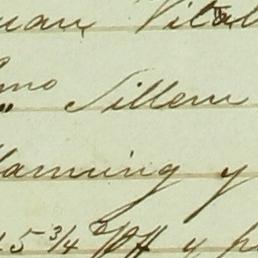 uan Vital
mo Sillem
Hanning y
15 3/4 y p